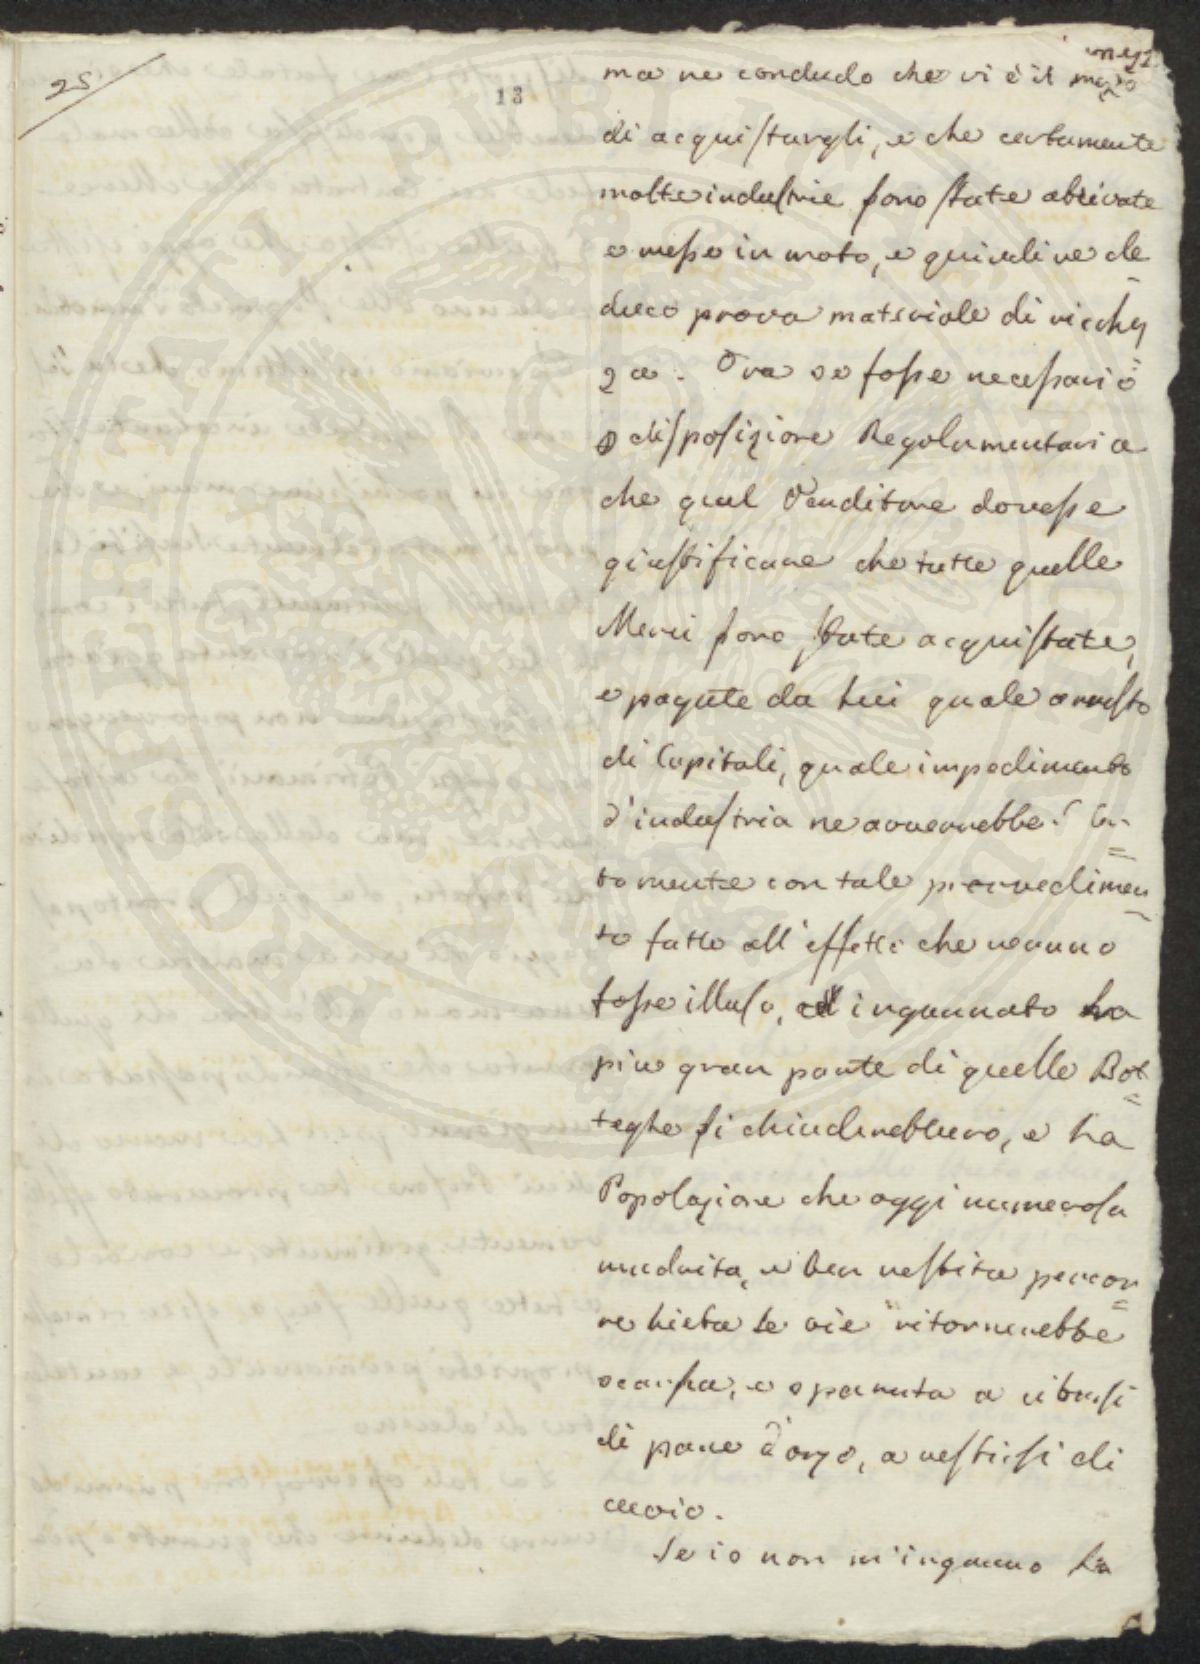 25
13
ma ne concludo che vi è il mezzo
di acquistargli, e che certamente
molte industrie sono state attivate
e messe in moto, e quindi ne de
duco prova materiale di ricchez
za. Ora se fosse necessario
disposizione Regolamentaria
che qual Venditore dovesse
giustificare che tutte quelle
Merci sono state acquistate,
e pagate da lui quale arresto
di Capitali, quale impedimento
d'industria ne avverrebbe? Cer=
tamente con tale provvedimen
to fatto all'effetto che neruno
fosse illuso, ed ingannato la
piu gran parte di quelle Bot=
teghe si chiuderebbero, e la
Popolazione che oggi numerosa
nudrita, e ben vestita percor=
re lieta le vie ritornerebbe
scarsa, e sparuta a cibarsi
di pane d'orzo, a vestirsi di
cuoio.
Se io non m'inganno la